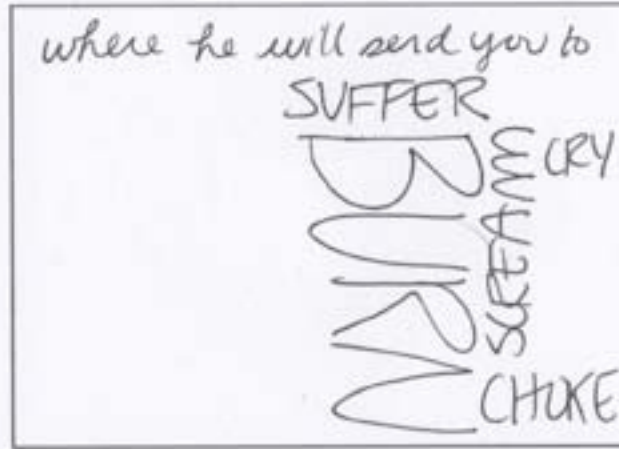 where he will send you to
SUFFER
BURN
SCREAM
CRY
CHOKE